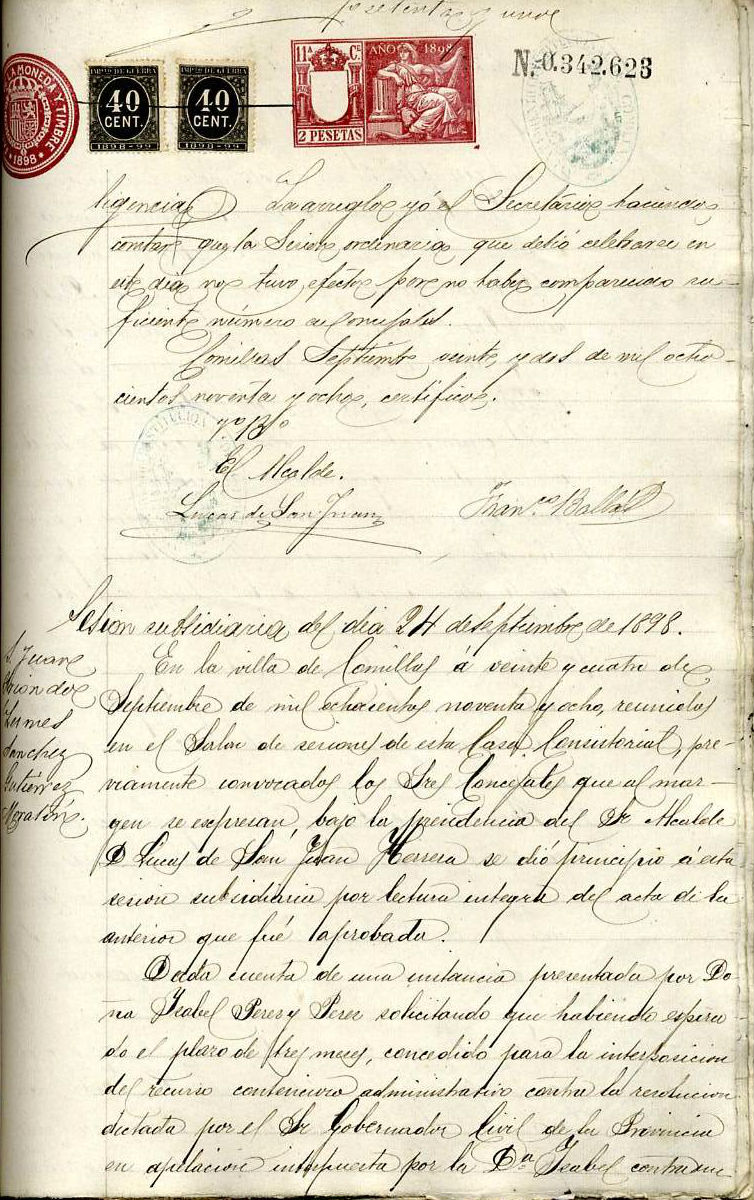 setenta y uno
LA MONEDA Y TIMBRE
1898
IMPTO DE GUERRA
40
CENT.
1898-99
IMPTO DE GUERRA
40
CENT.
1898-99
11ª Cᴱ
AÑO 1898
2 PESETAS
N. 0.342.623
ligencia La arreglo yó el Secretario haciendo
constar que la Sesion ordinaria que debió celebrarse en
este dia no tuvo efecto por no haber comparecido su-
ficiente número de Concejales.
Comillas Septiembre veinte y dos de mil ocho-
cientos noventa y ocho, certifico.
Vº Bº
El Alcalde.
Lucas de San Juan
Franco
Sesion subsidiaria del dia 24 de septiembre de 1898.
S. Juan
Sanchez
Gutierrez
En la villa de Comillas á veinte y cuatro de
Septiembre de mil ochocientos noventa y ocho, reunidos
en el Salon de sesiones de esta Casa Consistorial, pre-
viamente convocados los Sres Concejales que al mar-
gen se expresan, bajo la presidencia del Sr Alcalde
D Lucas de San Juan Herrera se dió principio á esta
sesion subsidiaria por lectura integra del acta de la
anterior que fué aprobada.
Dada cuenta de una instancia presentada por Do-
ña Ysabel Perez y Perez solicitando que habiendo espira-
do el plazo de tres meses, concedido para la interposicion
del recurso contencioso administrativo contra la resolucion
dictada por el Sr Gobernador Civil de la Provincia
en apelacion interpuesta por la Dª Ysabel contra un